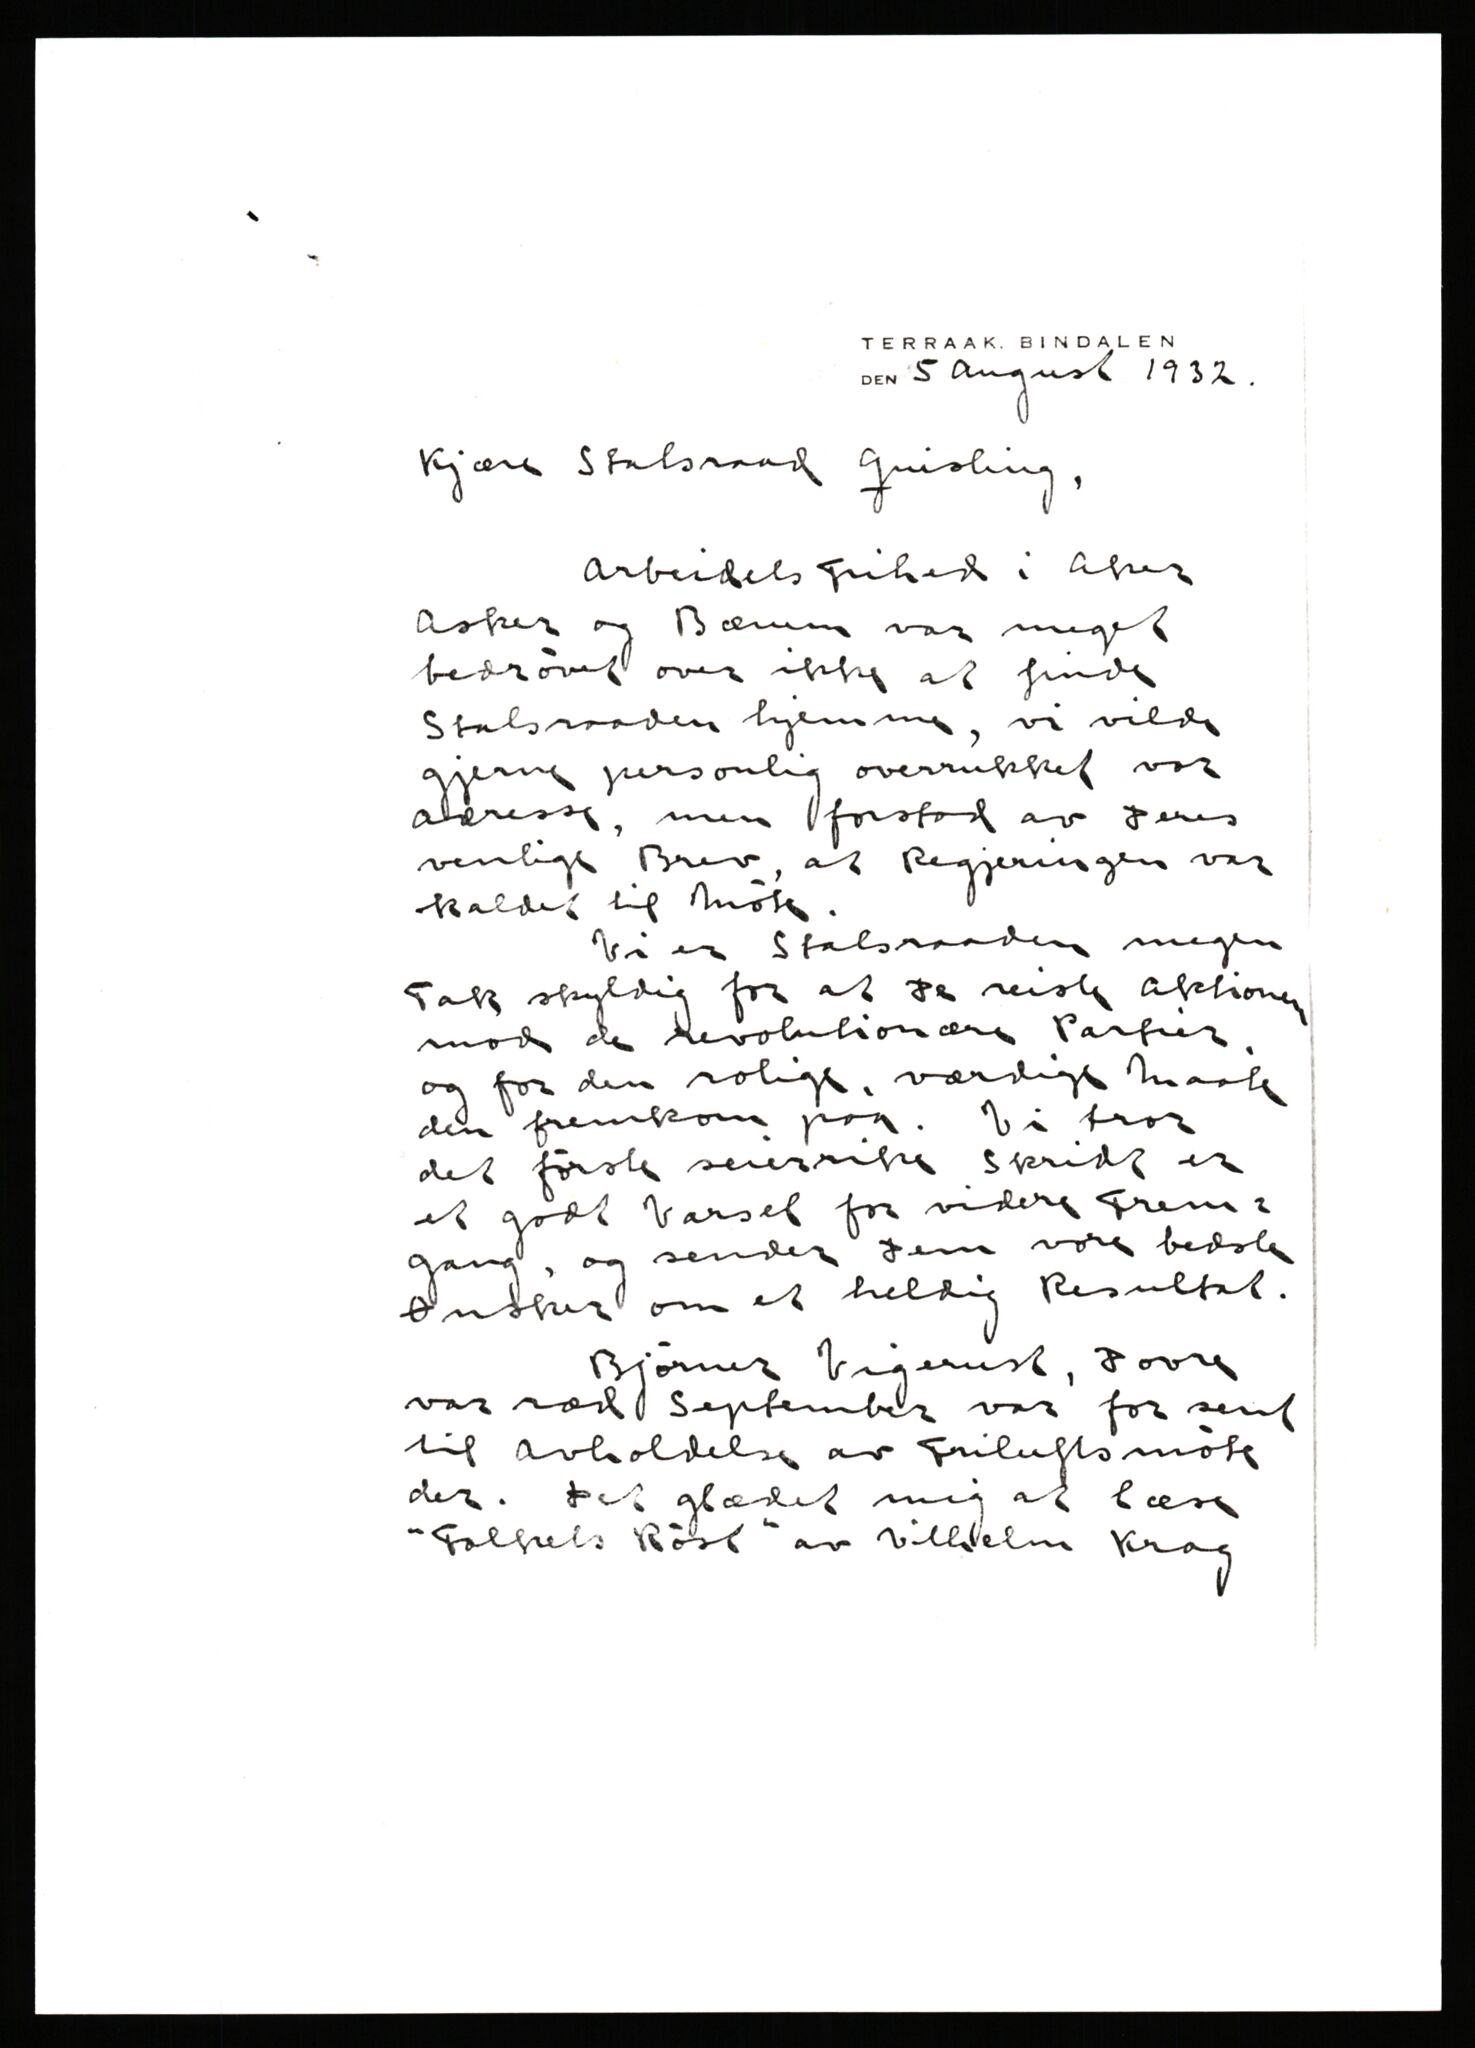 TERRAAK. BINDALEN
DEN 5 August 1932.
Kjære Statsraad Quisling,
Arbeidets Frihed i Aker
Asker og Bærum var meget
bedrövet over ikke at finde
Statsraaden hjemme, vi vilde
gjerne personlig overrukket vor
Adresse, men forstod av Deres
venlige Brev, at Regjeringen var
kaldet til Möte.
Vi er Statsraaden megen
Tak skyldig for at De reiste Aktionen
mod de revolutionære Partier,
og for den rolige, værdige Maate
den fremkom paa. Vi tror
det förste seierrike Skridt er
et godt Varsel for videre Frem=
gang, og sender Dem vore bedste
Ønsker om et heldig Resultat.
Björner Vigerust, Dovre
var ræd September var for sent
til Avholdelse av Friluftsmöte
der. Det glædet mig at læse
"Folkets Röst" av Vilhelm Krag